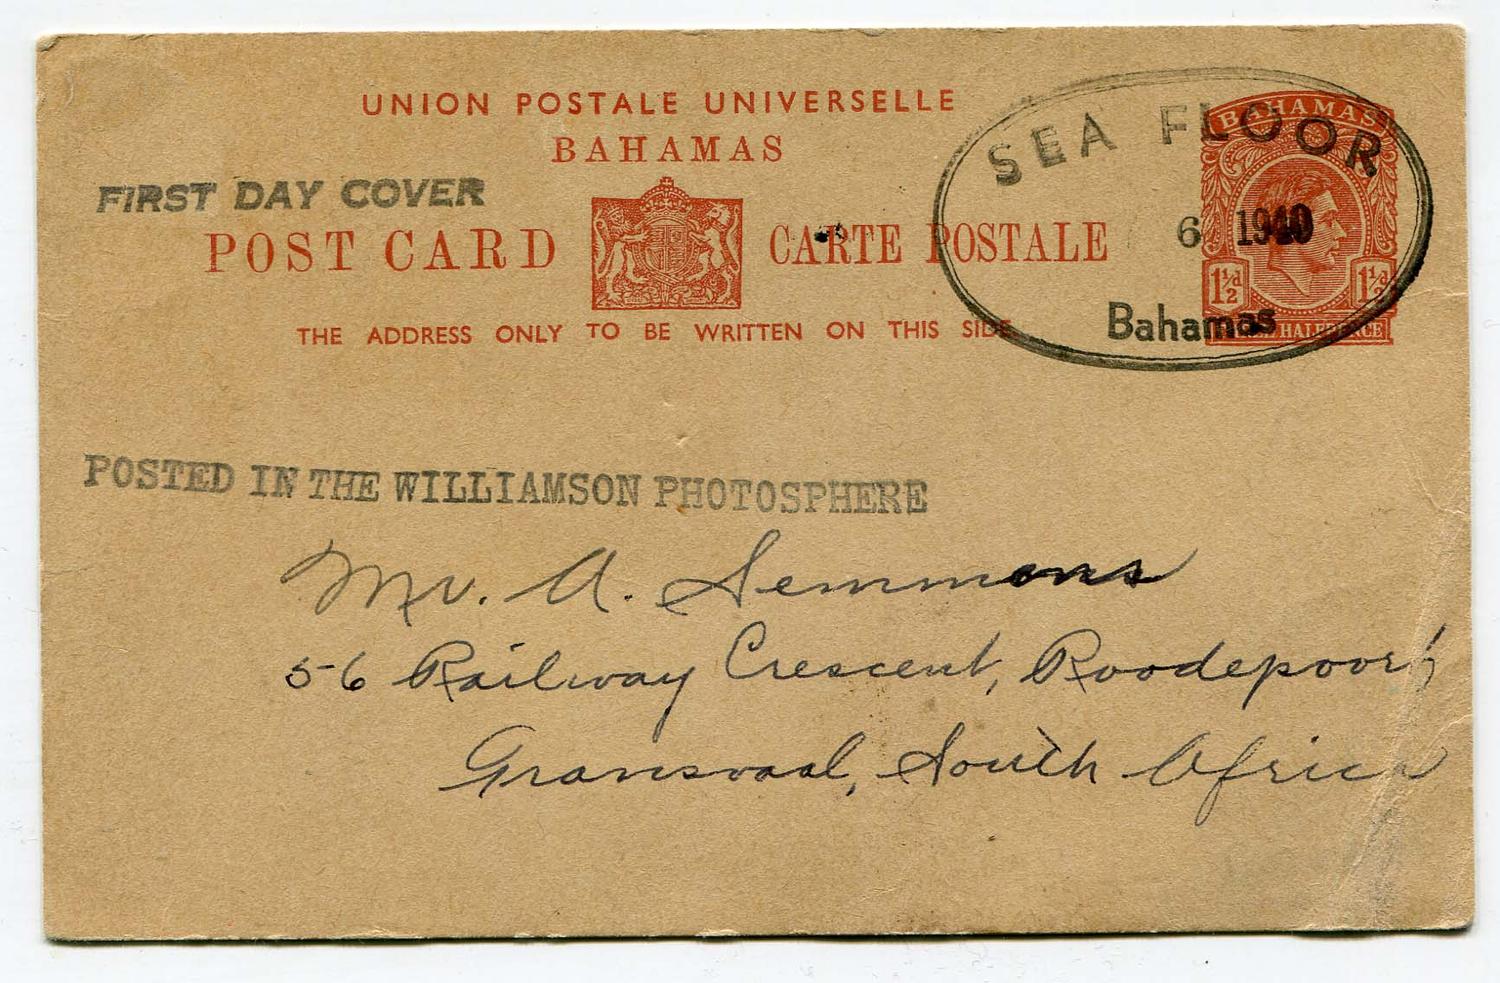 UNION POSTALE UNIVERSELLE
BAHAMAS
FIRST DAY COVER
POST CARD CARTE POSTALE
THE ADDRESS ONLY TO BE WRITTEN ON THIS SIDE
SEA FLOOR
6 1940
Bahamas
BAHAMAS
1½d 1½d
HALFPENCE
POSTED IN THE WILLIAMSON PHOTOSPHERE
Mr. A. Semmons
56 Railway Crescent, Roodepoort,
Transvaal, South Africa